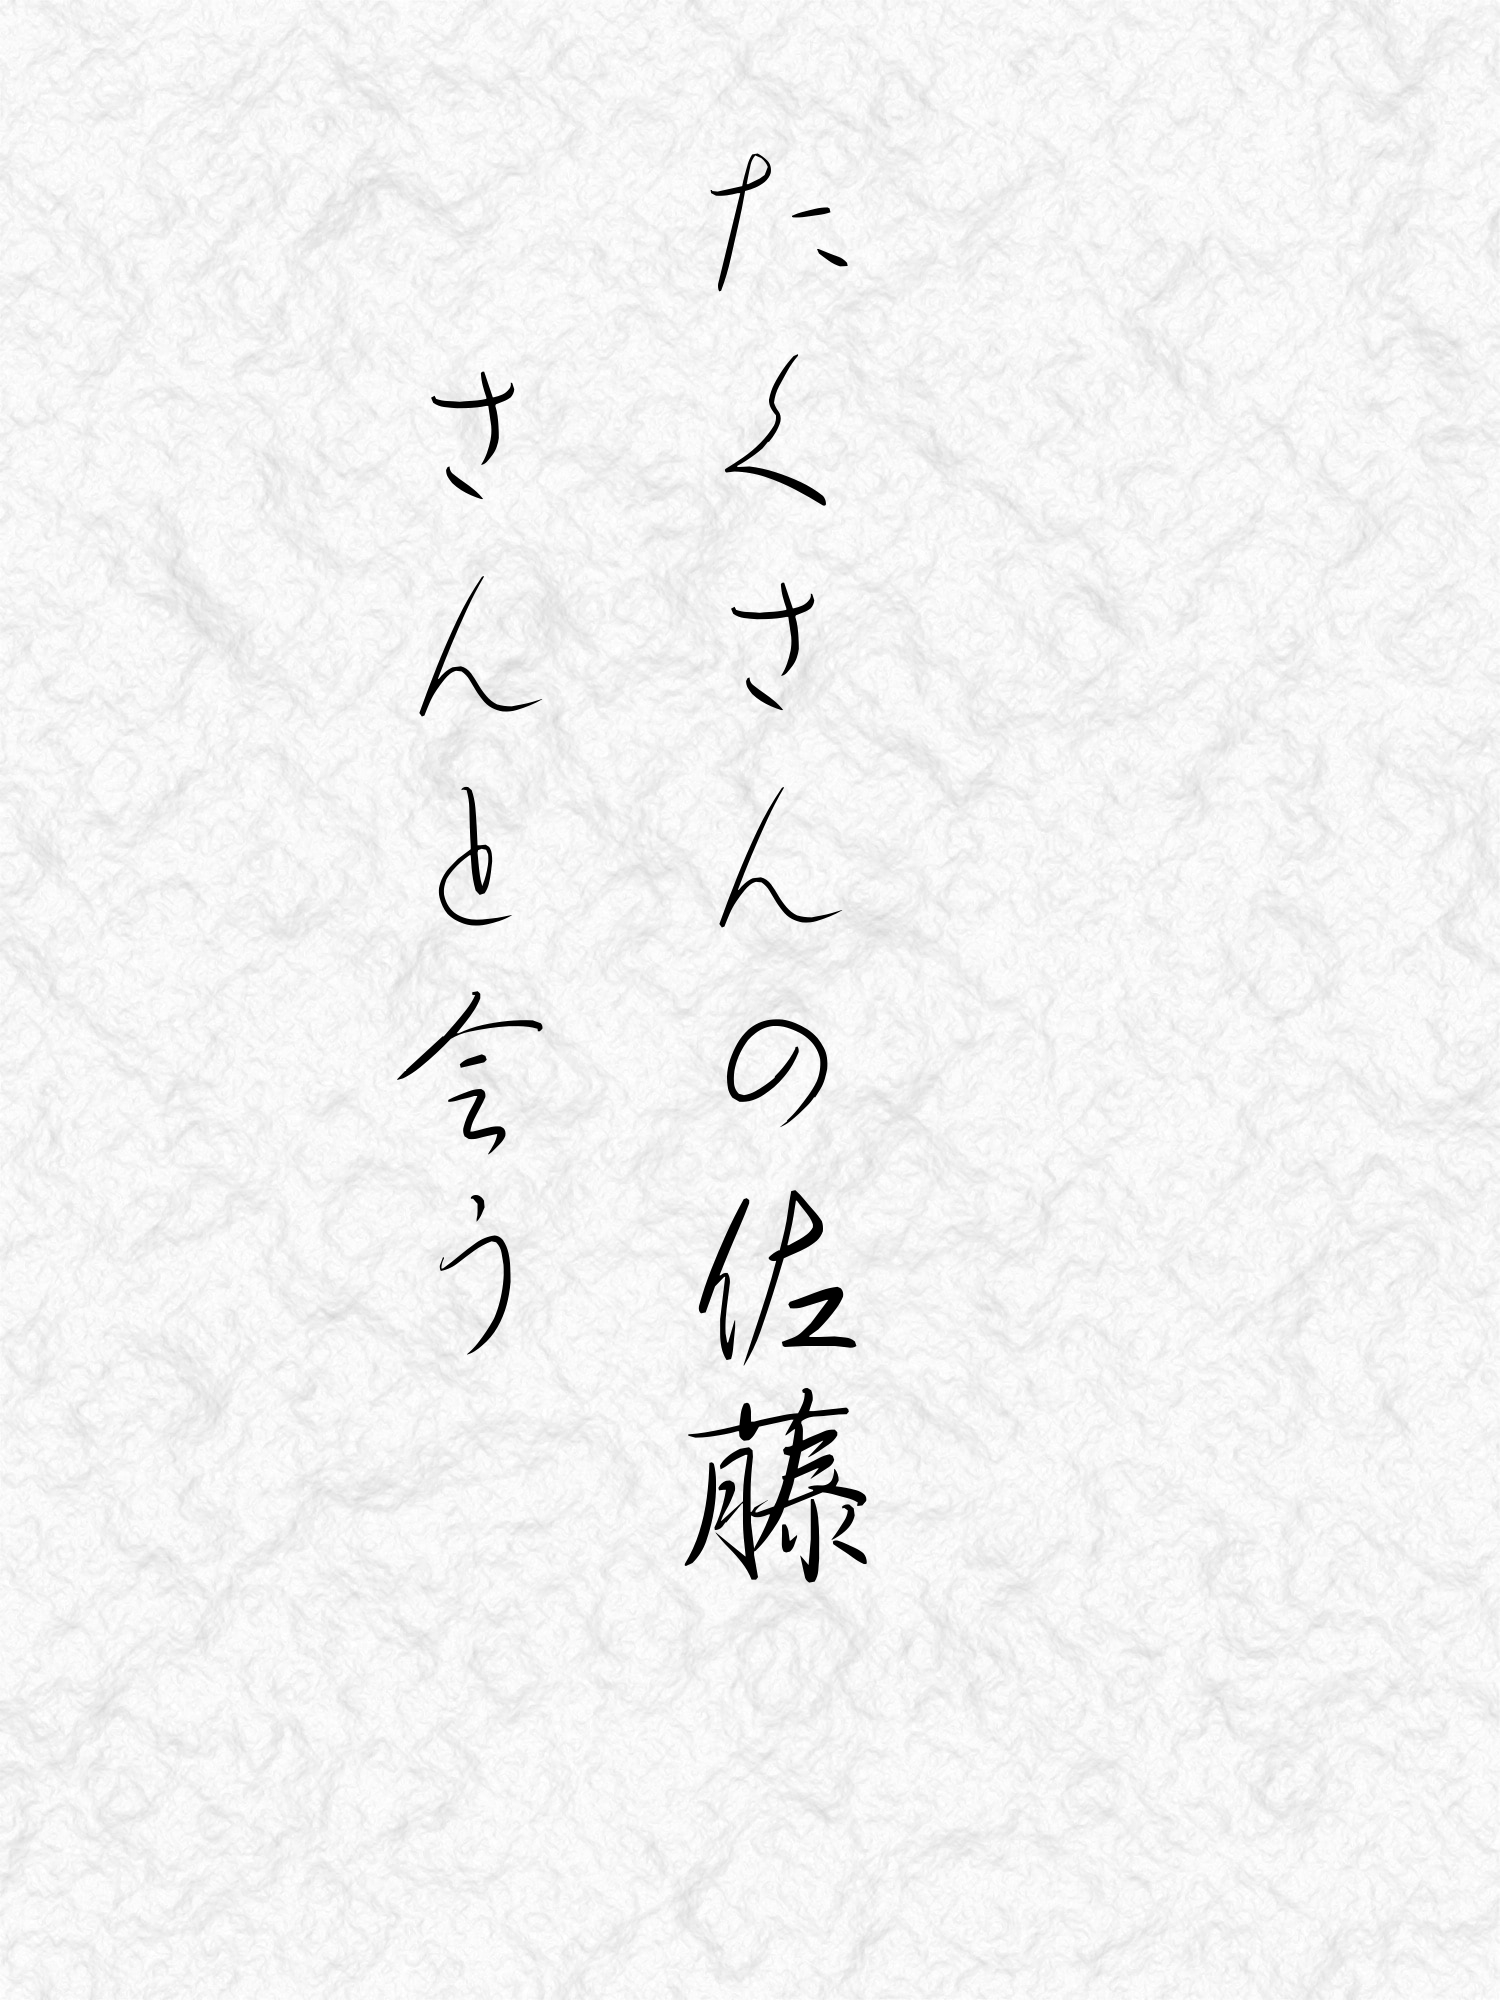 たくさんの佐藤
さんと会う